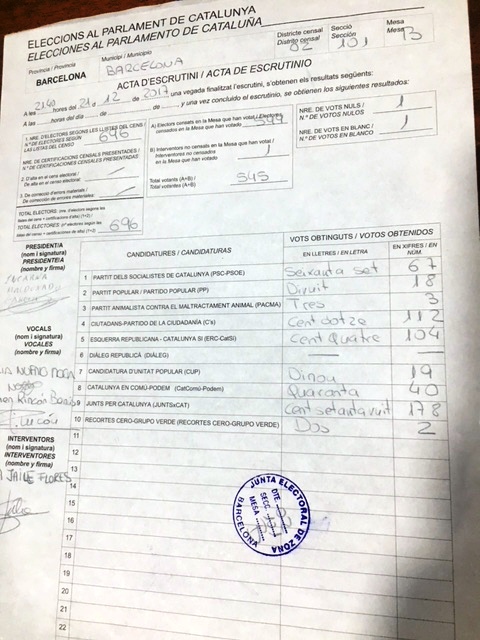 ELECCIONS AL PARLAMENT DE CATALUNYA
ELECCIONES AL PARLAMENTO DE CATALUÑA
Districte censal
Distrito censal
02
Secció
Sección
101
Mesa
Mesa
B
Província / Provincia
BARCELONA
Municipi / Municipio
BARCELONA
ACTA D'ESCRUTINI / ACTA DE ESCRUTINIO
A les 2140 hores del 21 de 12 de 2017, una vegada finalitzat l'escrutini, s'obtenen els resultats següents:
A las hores del día de de y una vez concluido el escrutinio, se obtienen los siguientes resultados:
1. NRE. D'ELECTORS SEGONS LES LLISTES DEL CENS /
N.º DE ELECTORES SEGÚN
LAS LISTAS DEL CENSO
696
NRE. DE CERTIFICACIONS CENSALS PRESENTADES /
N.º DE CERTIFICACIONES CENSALES PRESENTADAS
2. D'alta en el cens electoral /
De alta en el censo electoral
3. De correcció d'errors materials /
De corrección de errores materiales
TOTAL ELECTORS
TOTAL ELECTORES
696
A) Electors censats en la Mesa que han votat / Electores
censados en la Mesa que han votado
544
B) Interventors no censats en la Mesa que han votat /
Interventores no censados
en la Mesa que han votado
1
Total votants (A+B) /
Total votantes (A+B)
545
NRE. DE VOTS NULS /
N.º DE VOTOS NULOS
1
NRE. DE VOTS EN BLANC /
N.º DE VOTOS EN BLANCO
1
PRESIDENT/A
(nom i signatura)
PRESIDENTE/A
(nombre y firma)
VOCALS
(nom i signatura)
VOCALES
(nombre y firma)
INTERVENTORS
(nom i signatura)
INTERVENTORES
(nombre y firma)
JAILE FLORES
CANDIDATURES / CANDIDATURAS
VOTS OBTINGUTS / VOTOS OBTENIDOS
EN LLETRES / EN LETRA
EN XIFRES / EN NÚM.
1 PARTIT DELS SOCIALISTES DE CATALUNYA (PSC-PSOE) Seixanta set 67
2 PARTIT POPULAR / PARTIDO POPULAR (PP) Divuit 18
3 PARTIT ANIMALISTA CONTRA EL MALTRACTAMENT ANIMAL (PACMA) Tres 3
4 CIUTADANS-PARTIDO DE LA CIUDADANÍA (C's) Cent dotze 112
5 ESQUERRA REPUBLICANA - CATALUNYA SÍ (ERC-CatSí) Cent Quatre 104
6 DIÀLEG REPUBLICÀ (DIÀLEG) — —
7 CANDIDATURA D'UNITAT POPULAR (CUP) Dinou 19
8 CATALUNYA EN COMÚ-PODEM (CatComú-Podem) Quaranta 40
9 JUNTS PER CATALUNYA (JUNTSxCAT) Cent setanta vuit 178
10 RECORTES CERO-GRUPO VERDE (RECORTES CERO-GRUPO VERDE) Dos 2
11
12
13
14
15
16
17
18
19
20
21
22
JUNTA ELECTORAL DE ZONA
BARCELONA
DTE.
SECC.
MESA